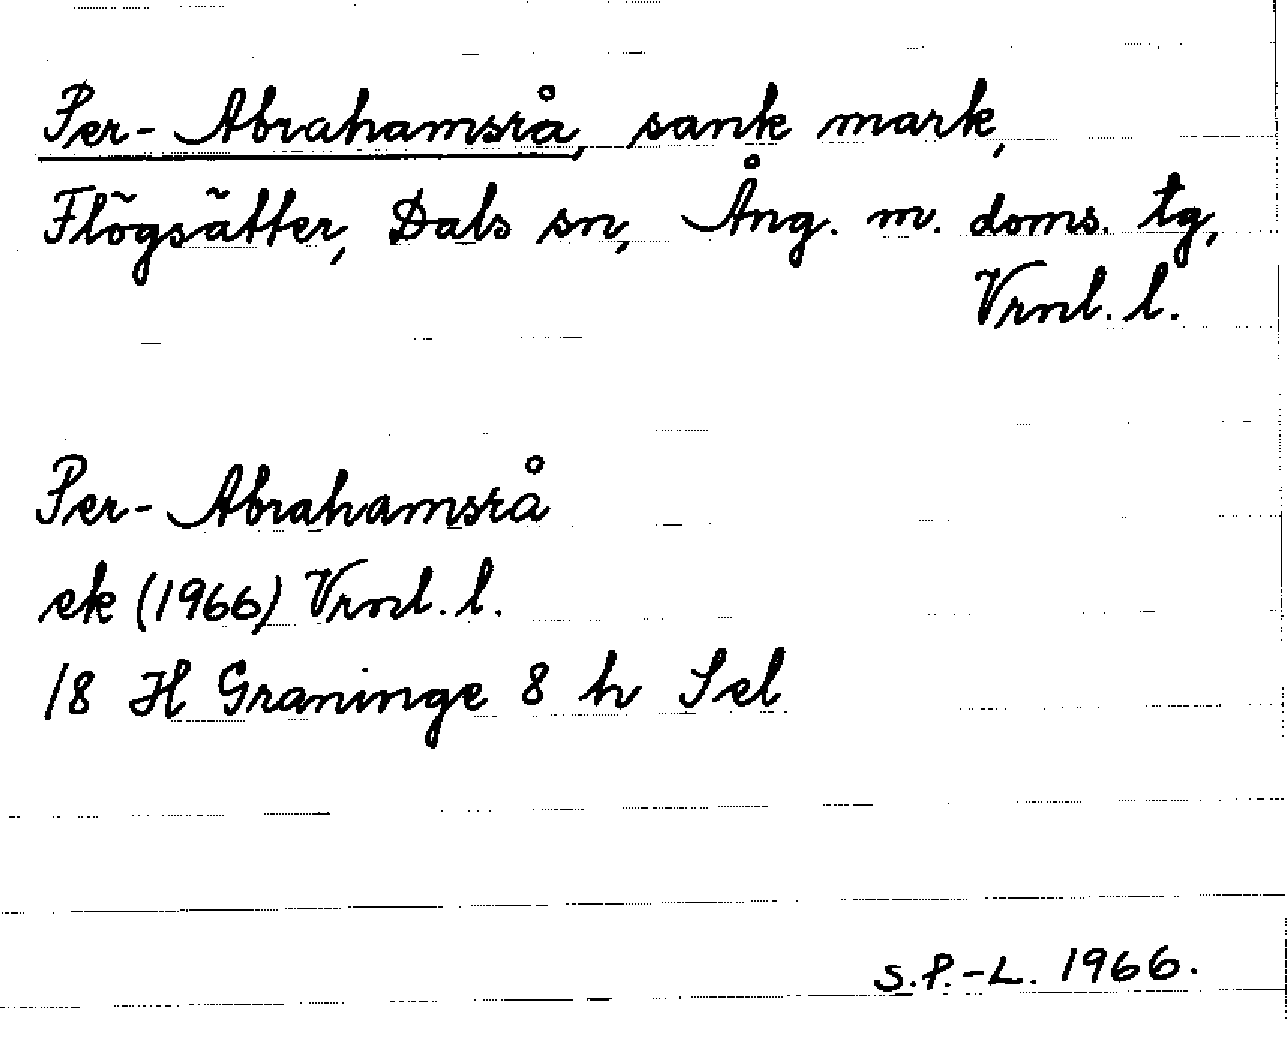 Per-Abrahamsrå, sank mark,
Flögsätter, Dals sn, Ång. m. doms. tg,
Vrnl. l.
Per-Abrahamsrå
ek (1966) Vrnl. l.
18 H Graninge 8 h Sel
S.P.-L. 1966.